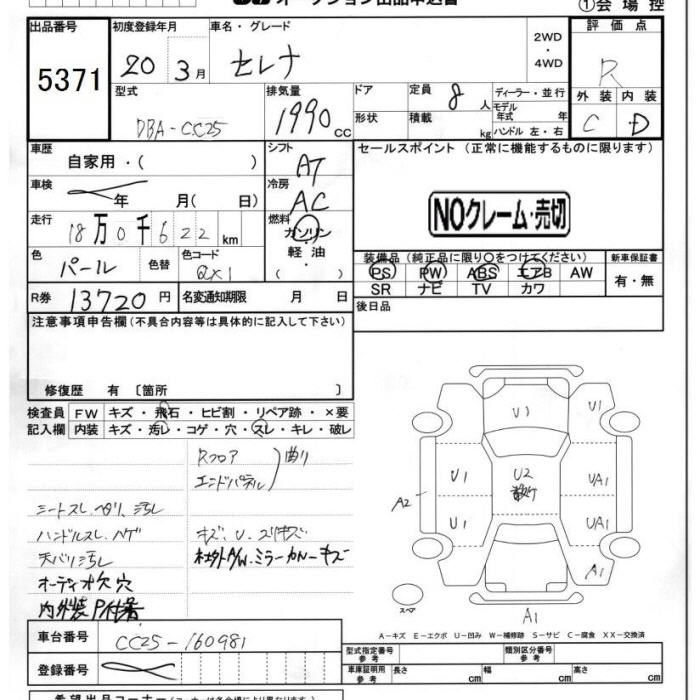 ①会場控
出品番号
5371
初度登録年月
20 3月
車名・グレード
セレナ
2WD
・
4WD
評価点
R
外装 内装
C D
型式
DBA-CC25
排気量
1990 cc
ドア
形状
定員 8 人
積載 kg
ディーラー・並行
モデル年式 年
ハンドル 左・右
車歴
自家用・( )
シフト
AT
セールスポイント (正常に機能するものに限ります)
NOクレーム・売切
車検 年 月( 日)
冷房
AC
走行
18万0千622km
燃料
ガソリン
軽油
・
( )
色
パール
色替
色コード
QX1
装備品 (純正品に限り○をつけてください)
PS PW ABS エアB AW
SR ナビ TV カワ
新車保証書
有・無
R券 13720円
名変通知期限 月 日
後日品
注意事項申告欄(不具合内容等は具体的に記入して下さい)
修復歴 有 〔箇所 〕
検査員記入欄
FW キズ・飛石・ヒビ割・リペア跡・×要
内装 キズ・汚レ・コゲ・穴・スレ・キレ・破レ
Rフロア
エンドパネル
曲り
シートスレ、ヘタリ、汚レ
ハンドルスレ、ハゲ
天バリ汚レ
オーディオ欠 穴
内外装P付着
キズ、U、スリキズ
社外A/W、ミラーカバーキズ
U1
U1
U1
U2
UA1
A2
U1
UA1
A1
スペア
A1
A-キズ E-エクボ U-凹み W-補修跡 S-サビ C-腐食 XX-交換済
車台番号
CC25-160981
登録番号
型式指定番号
参考
類別区分番号
参考
車庫証明用
参考
長さ cm
幅 cm
高さ cm